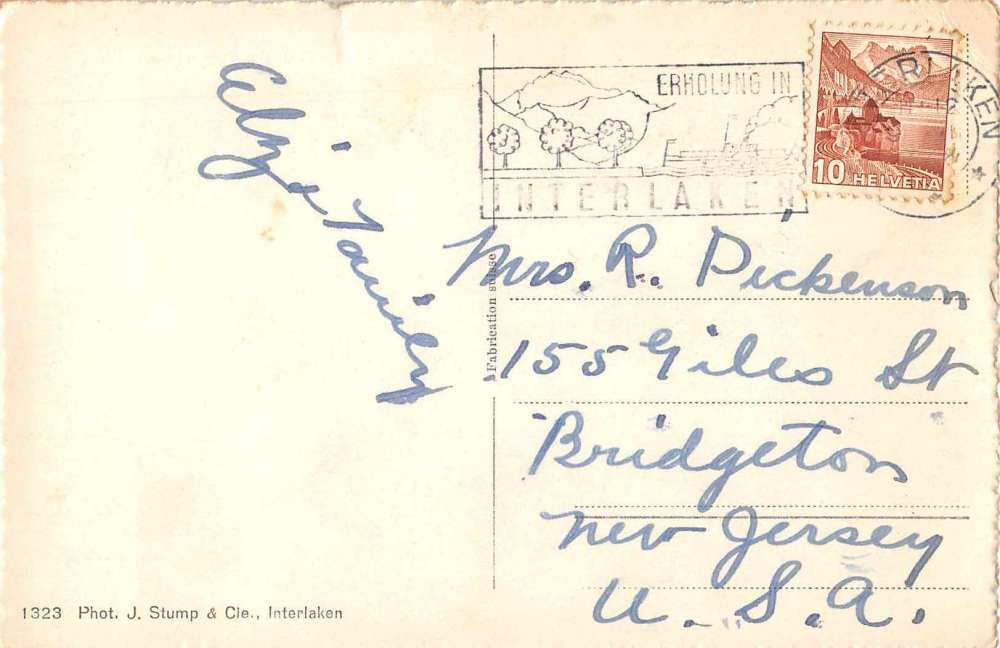 & Family
ERHOLUNG IN
INTERLAKEN
10 HELVETIA
INTERLAKEN
Mrs. R. Dickenson
155 Giles St
Bridgeton
New Jersey
U.S.A.
Fabrication suisse
1323 Phot. J. Stump & Cie., Interlaken